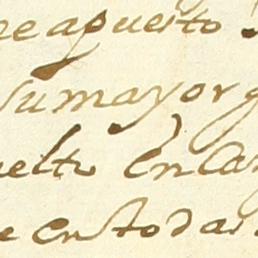 re apuesto
Su mayor g
uelto En la
e en todas